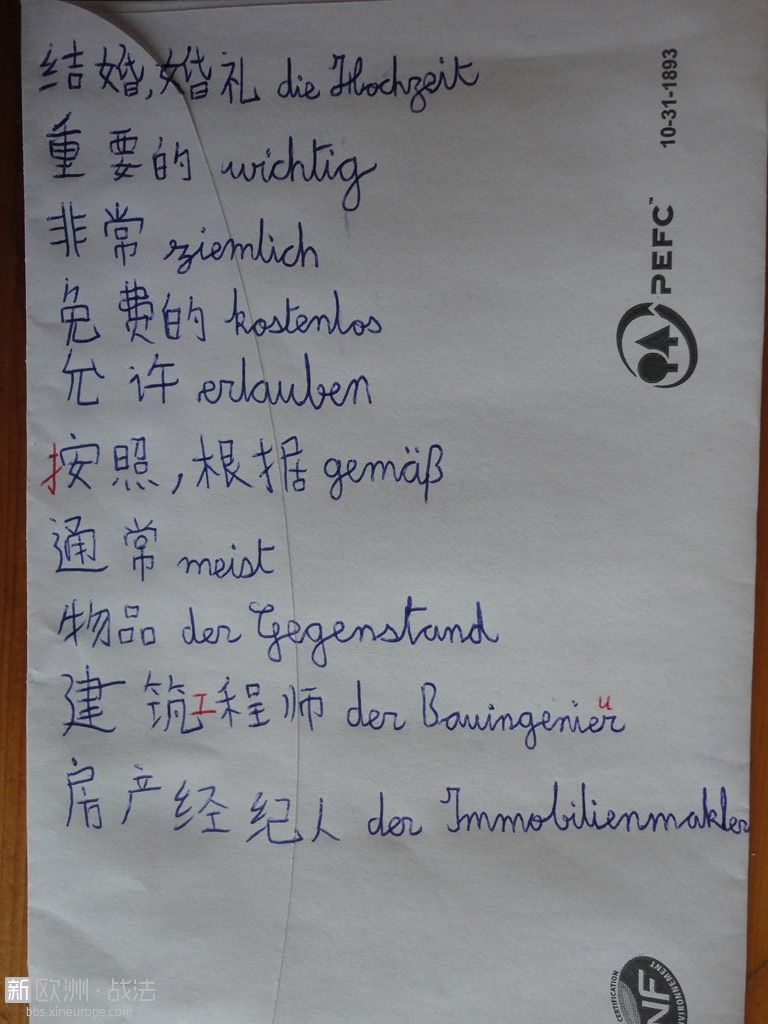 结婚,婚礼 die Hochzeit
重要的 wichtig
非常 ziemlich
免费的 kostenlos
允许 erlauben
按照,根据 gemäß
通常 meist
物品 der Gegenstand
建筑工程师 der Bauingenieur
房产经纪人 der Immobilienmakler
10-31-1893
PEFC™
NF
CERTIFICATION
ENVIRONNEMENT
新欧洲·战法
bbs.xineurope.com